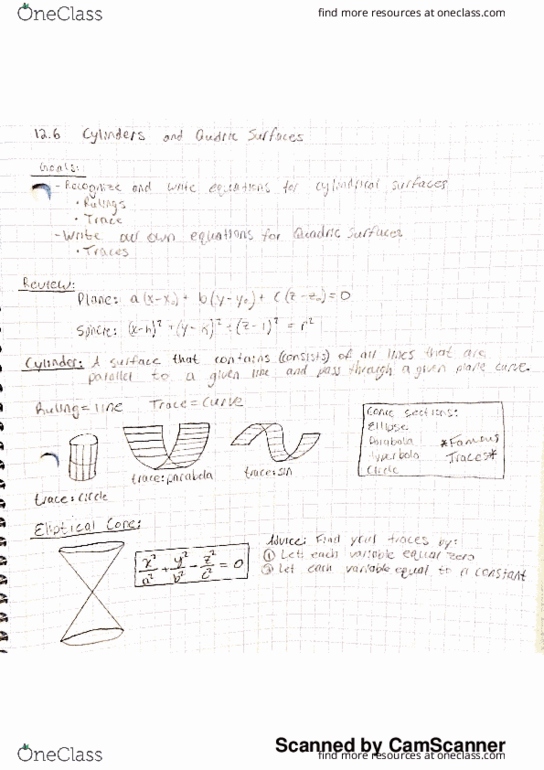 OneClass find more resources at oneclass.com
12.6 Cylinders and Quadric Surfaces
Goals:
- Recognize and write equations for cylindrical surfaces
• Rulings
• Trace
- Write own equations for Quadric Surfaces
• Traces
Review:
Plane: a(x-x₀) + b(y-y₀) + c(z-z₀) = 0
Sphere: (x-h)² + (y-k)² + (z-l)² = r²
Cylinder: A surface that contains (consists) of all lines that are
parallel to a given line and pass through a given plane curve.
Ruling = line Trace = curve
Conic sections:
Ellipse
Parabola *Famous
Hyperbola Traces*
Circle
trace: circle
trace: parabola
trace: sin
Eliptical Cone:
x²/a² + y²/b² - z²/c² = 0
Advice: Find your traces by:
① Let each variable equal zero
② Let each variable equal to a constant
Scanned by CamScanner
OneClass find more resources at oneclass.com